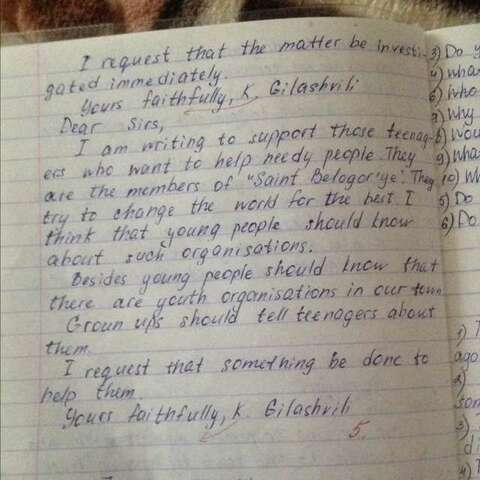 I request that the matter be investi-
gated immediately.
Yours faithfully, K. Gilashvili
Dear Sirs,
I am writing to support those teenag-
ers who want to help needy people. They
are the members of "Saint Belogor'ye". They
try to change the world for the best. I
think that young people should know
about such organisations.
Besides young people should know that
there are youth organisations in our town
Groun ups should tell teenagers about
them.
I request that something be done to
help them.
Yours faithfully, K. Gilashvili
5.
3) Do
4) wha
6) Who
7) Why
8) wou
9) wha
10) Wh
5) Do
6) Do
1) T
ago
2)
som
3)
di
4) T